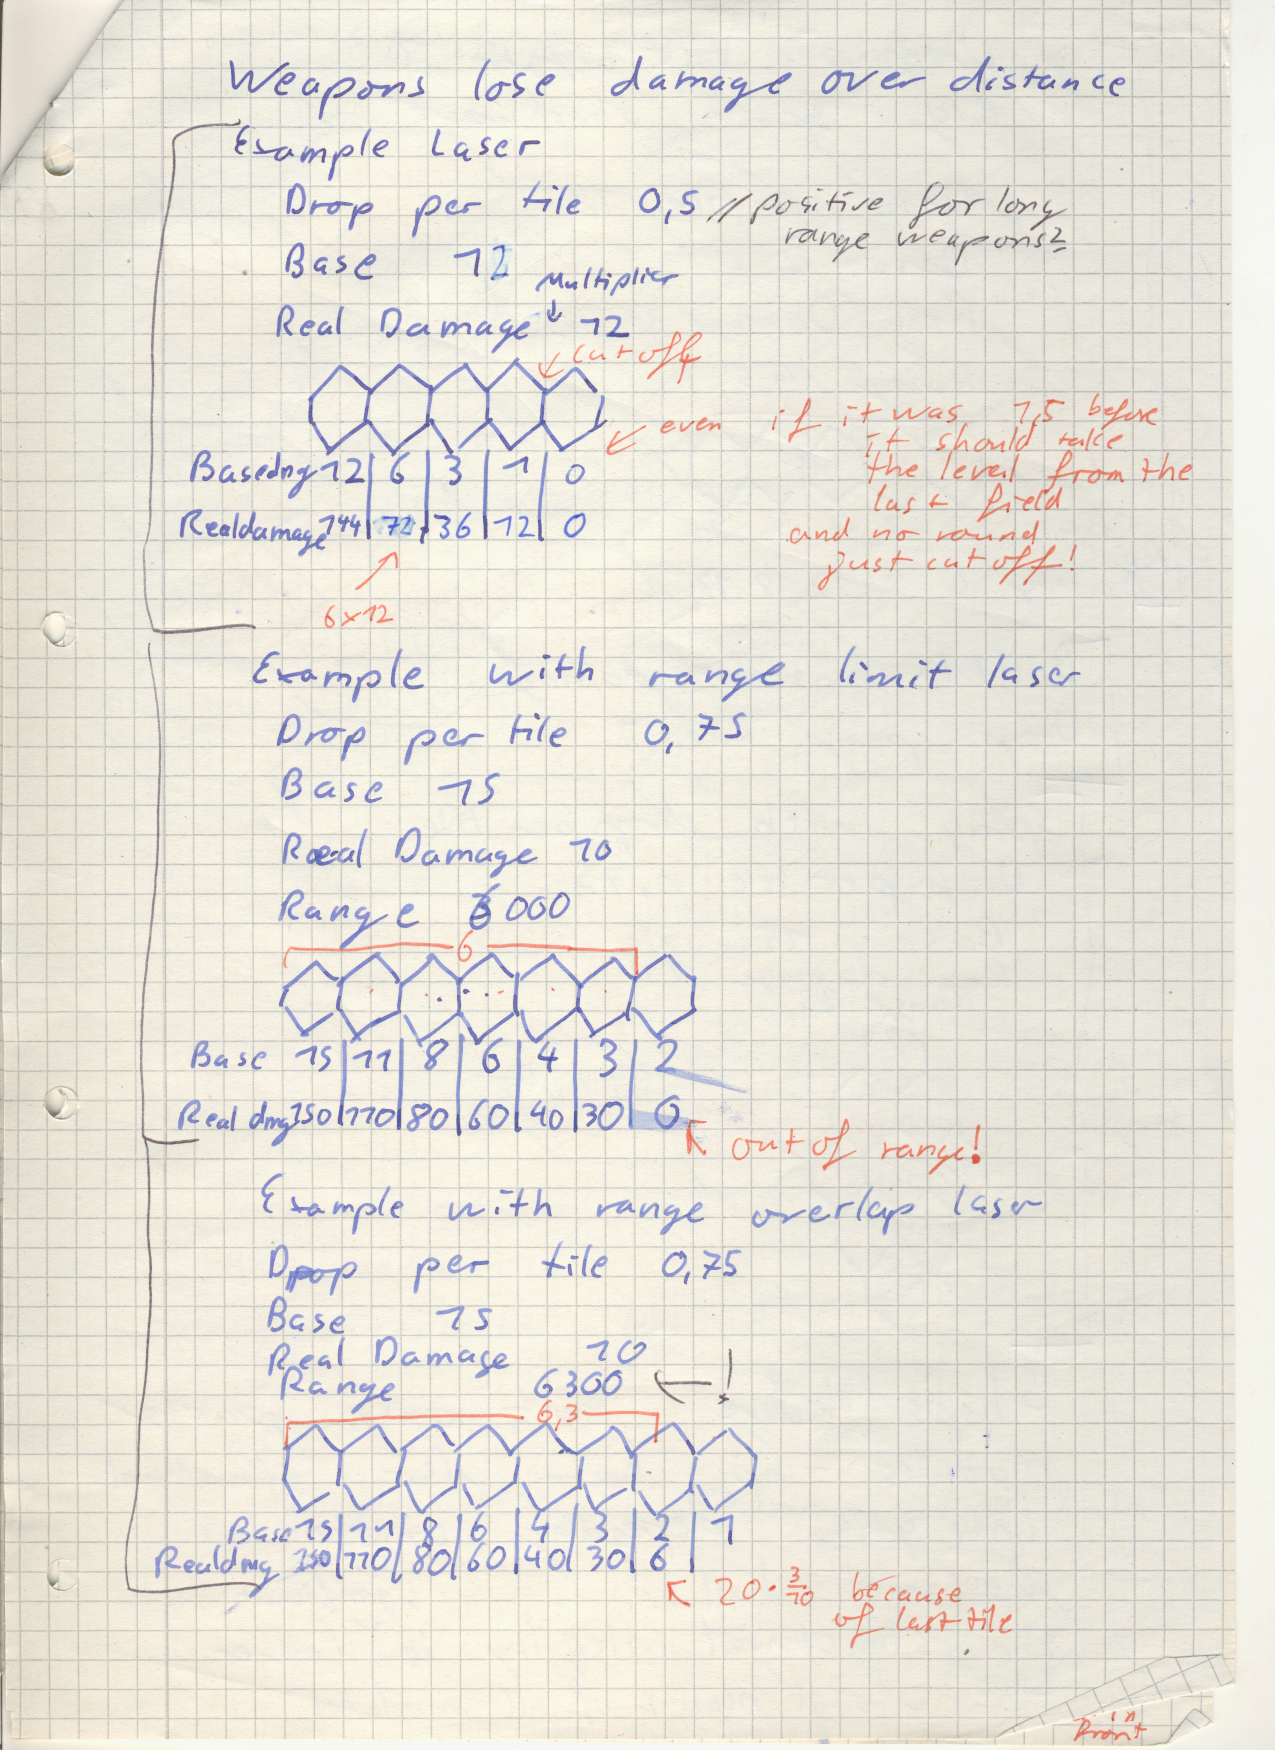 Weapons lose damage over distance
Example Laser
Drop per tile 0,5 // positive for long
range weapons?
Base 12
Multiplier
Real Damage 12
cut off
even if it was 1,5 before
it should take
the level from the
last field
and no round
just cut off!
Basedmg 12 | 6 | 3 | 1 | 0
Realdamage 144 | 72 | 36 | 12 | 0
6x12
Example with range limit laser
Drop per tile 0,75
Base 15
Real Damage 10
Range 6000
6
Base 15 | 11 | 8 | 6 | 4 | 3 | 2
Real dmg 150 | 110 | 80 | 60 | 40 | 30 | 0
out of range!
Example with range overlap laser
Drop per tile 0,75
Base 15
Real Damage 10
Range 6300 !
6,3
Base 15 | 11 | 8 | 6 | 4 | 3 | 2 | 1
Realdmg 150 | 110 | 80 | 60 | 40 | 30 | 6 |
20 · 3/10 because
of last tile
in
Front